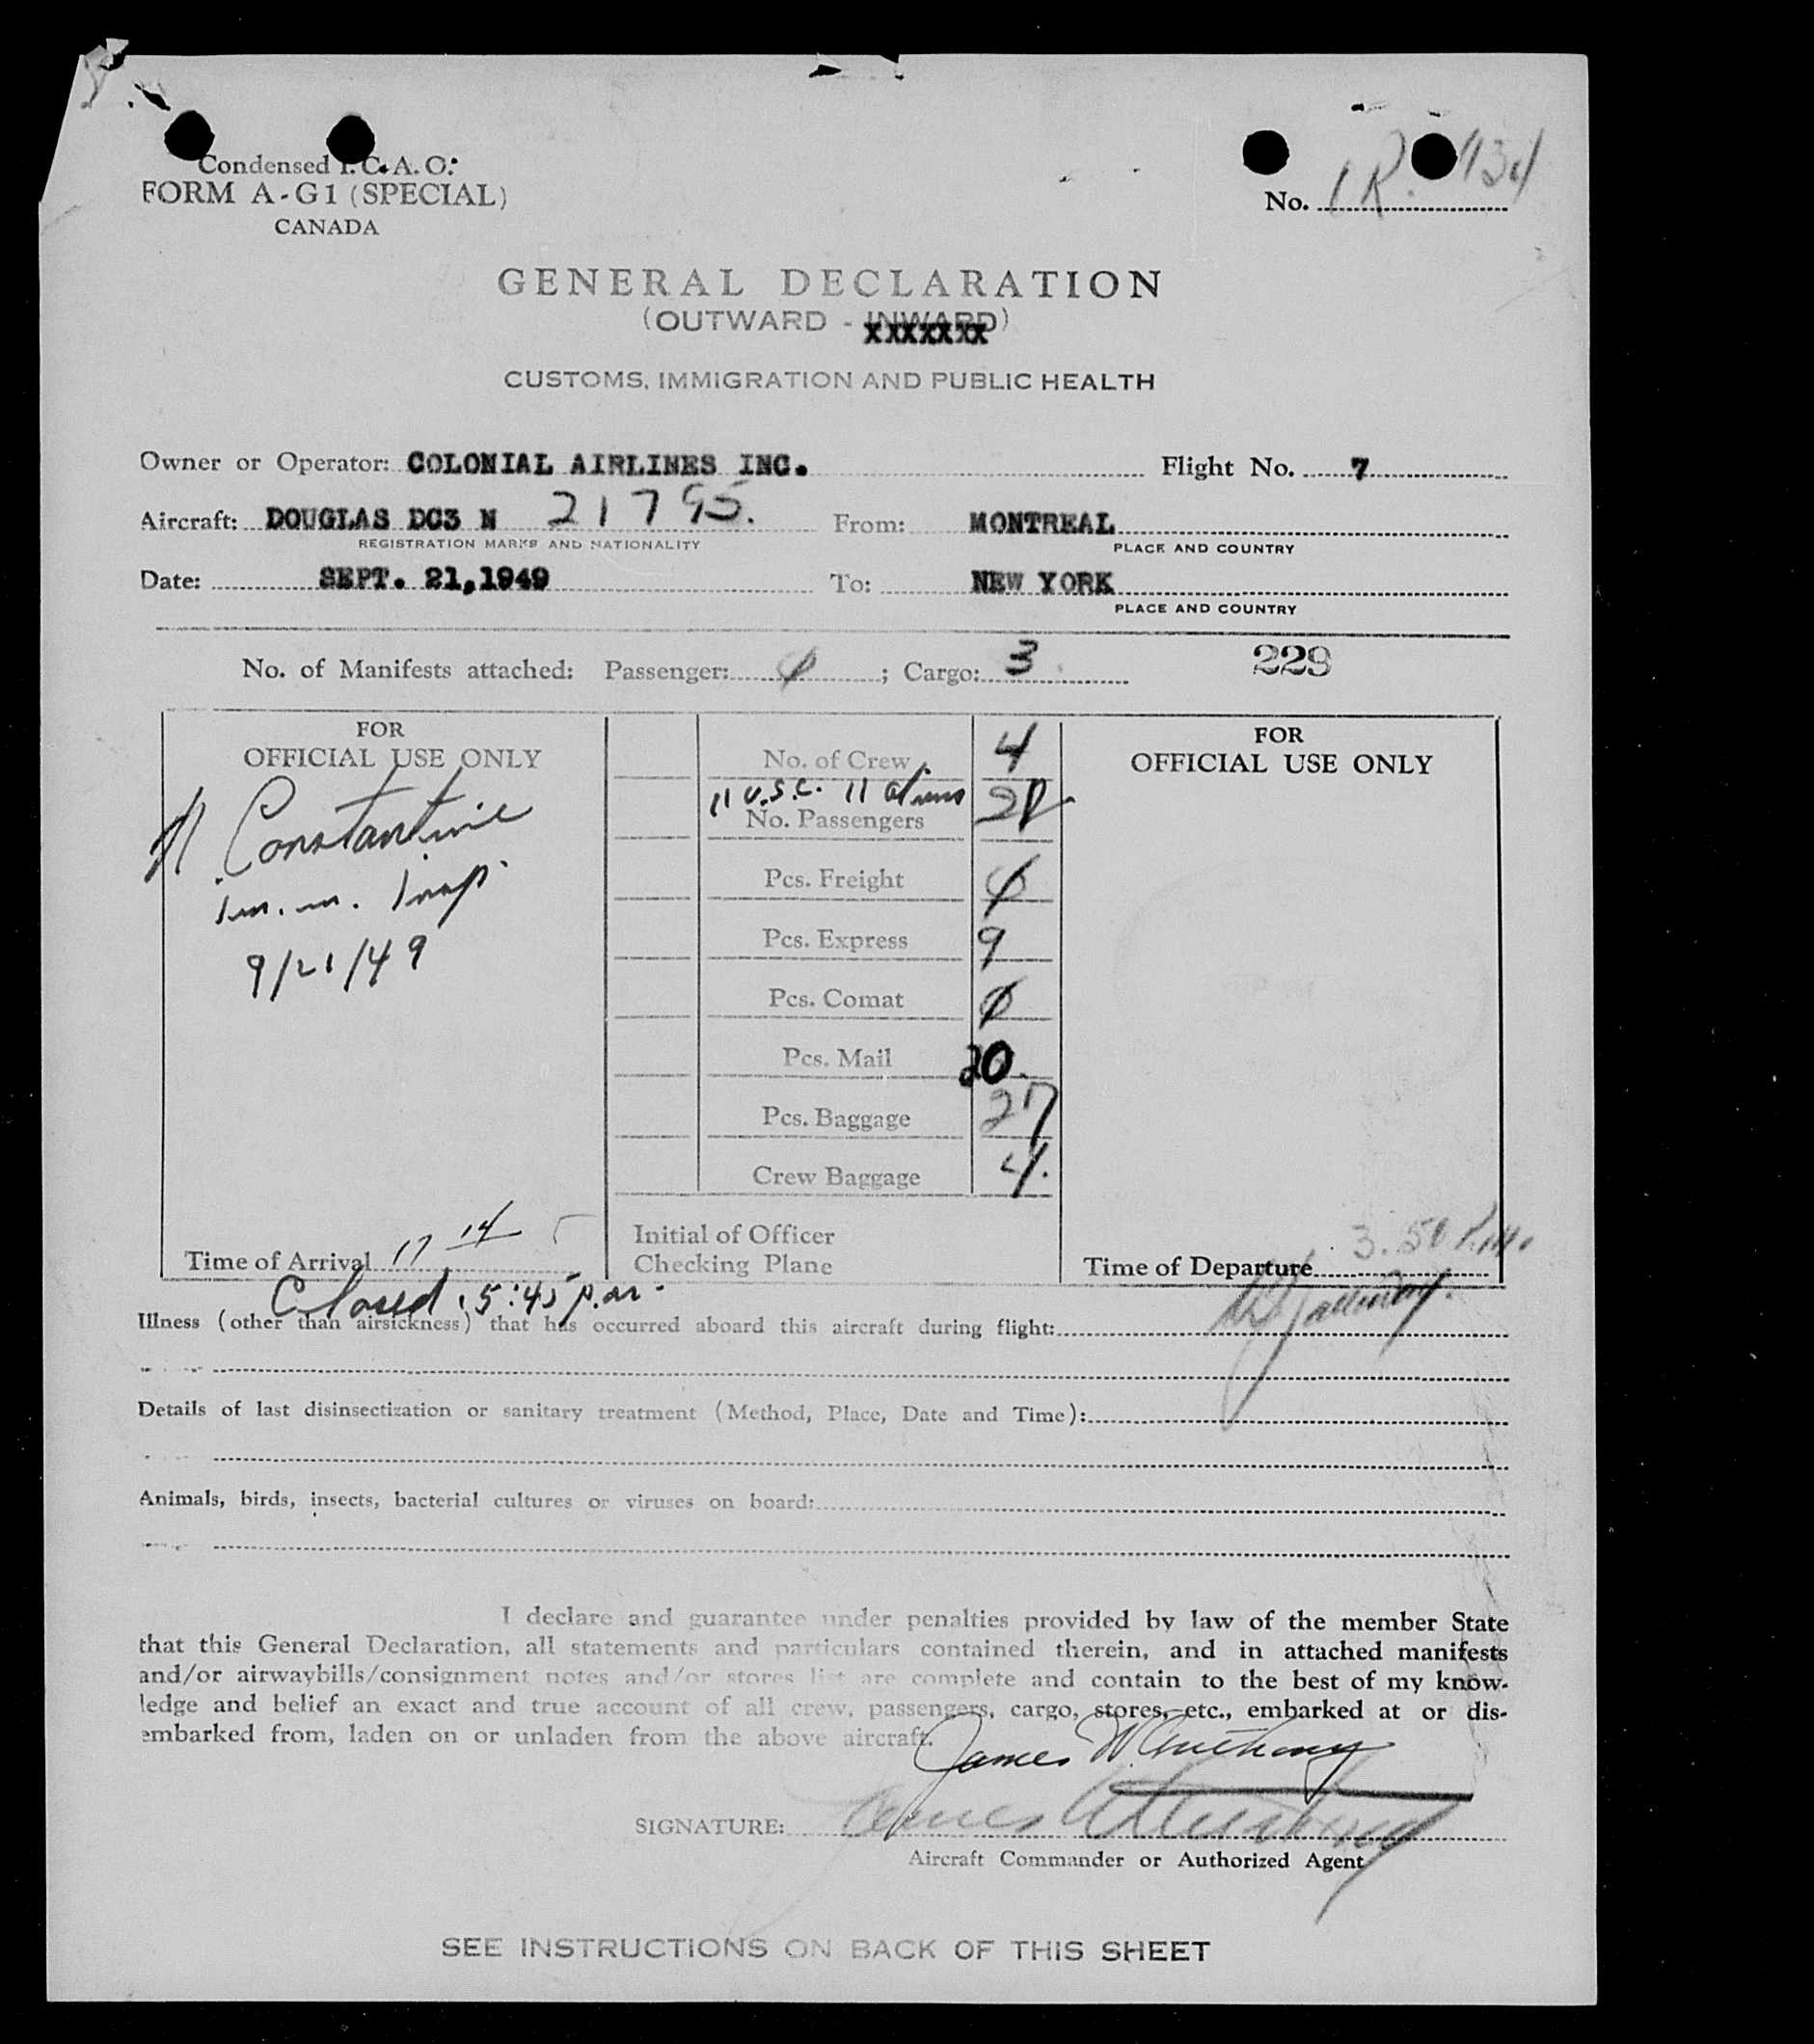 Condensed I.C.A.O.
FORM A-G1 (SPECIAL)
CANADA
No. 
GENERAL DECLARATION
(OUTWARD - INWARD)
XXXXXXX
CUSTOMS, IMMIGRATION AND PUBLIC HEALTH
Owner or Operator: COLONIAL AIRLINES INC. Flight No. 7
Aircraft: DOUGLAS DC3 N 21795. From: MONTREAL
REGISTRATION MARKS AND NATIONALITY PLACE AND COUNTRY
Date: SEPT. 21,1949 To: NEW YORK
PLACE AND COUNTRY
No. of Manifests attached: Passenger: ; Cargo: 3 229
FOR
OFFICIAL USE ONLY
Constantine
Imm. Insp.
9/21/49
Time of Arrival 17 14
Closed 5:45 p.m.
No. of Crew 4
11 U.S.C. 11 aliens
No. Passengers
Pcs. Freight 0
Pcs. Express 9
Pcs. Comat 0
Pcs. Mail 20
Pcs. Baggage 27
Crew Baggage 4.
Initial of Officer
Checking Plane
FOR
OFFICIAL USE ONLY
Time of Departure 3.50 P.M.
Illness (other than airsickness) that has occurred aboard this aircraft during flight:
Details of last disinsectization or sanitary treatment (Method, Place, Date and Time):
Animals, birds, insects, bacterial cultures or viruses on board:
I declare and guarantee under penalties provided by law of the member State
that this General Declaration, all statements and particulars contained therein, and in attached manifests
and/or airwaybills/consignment notes and/or stores list are complete and contain to the best of my know-
ledge and belief an exact and true account of all crew, passengers, cargo, stores, etc., embarked at or dis-
embarked from, laden on or unladen from the above aircraft.
James W. Anthony
SIGNATURE: James W Anthony
Aircraft Commander or Authorized Agent
SEE INSTRUCTIONS ON BACK OF THIS SHEET